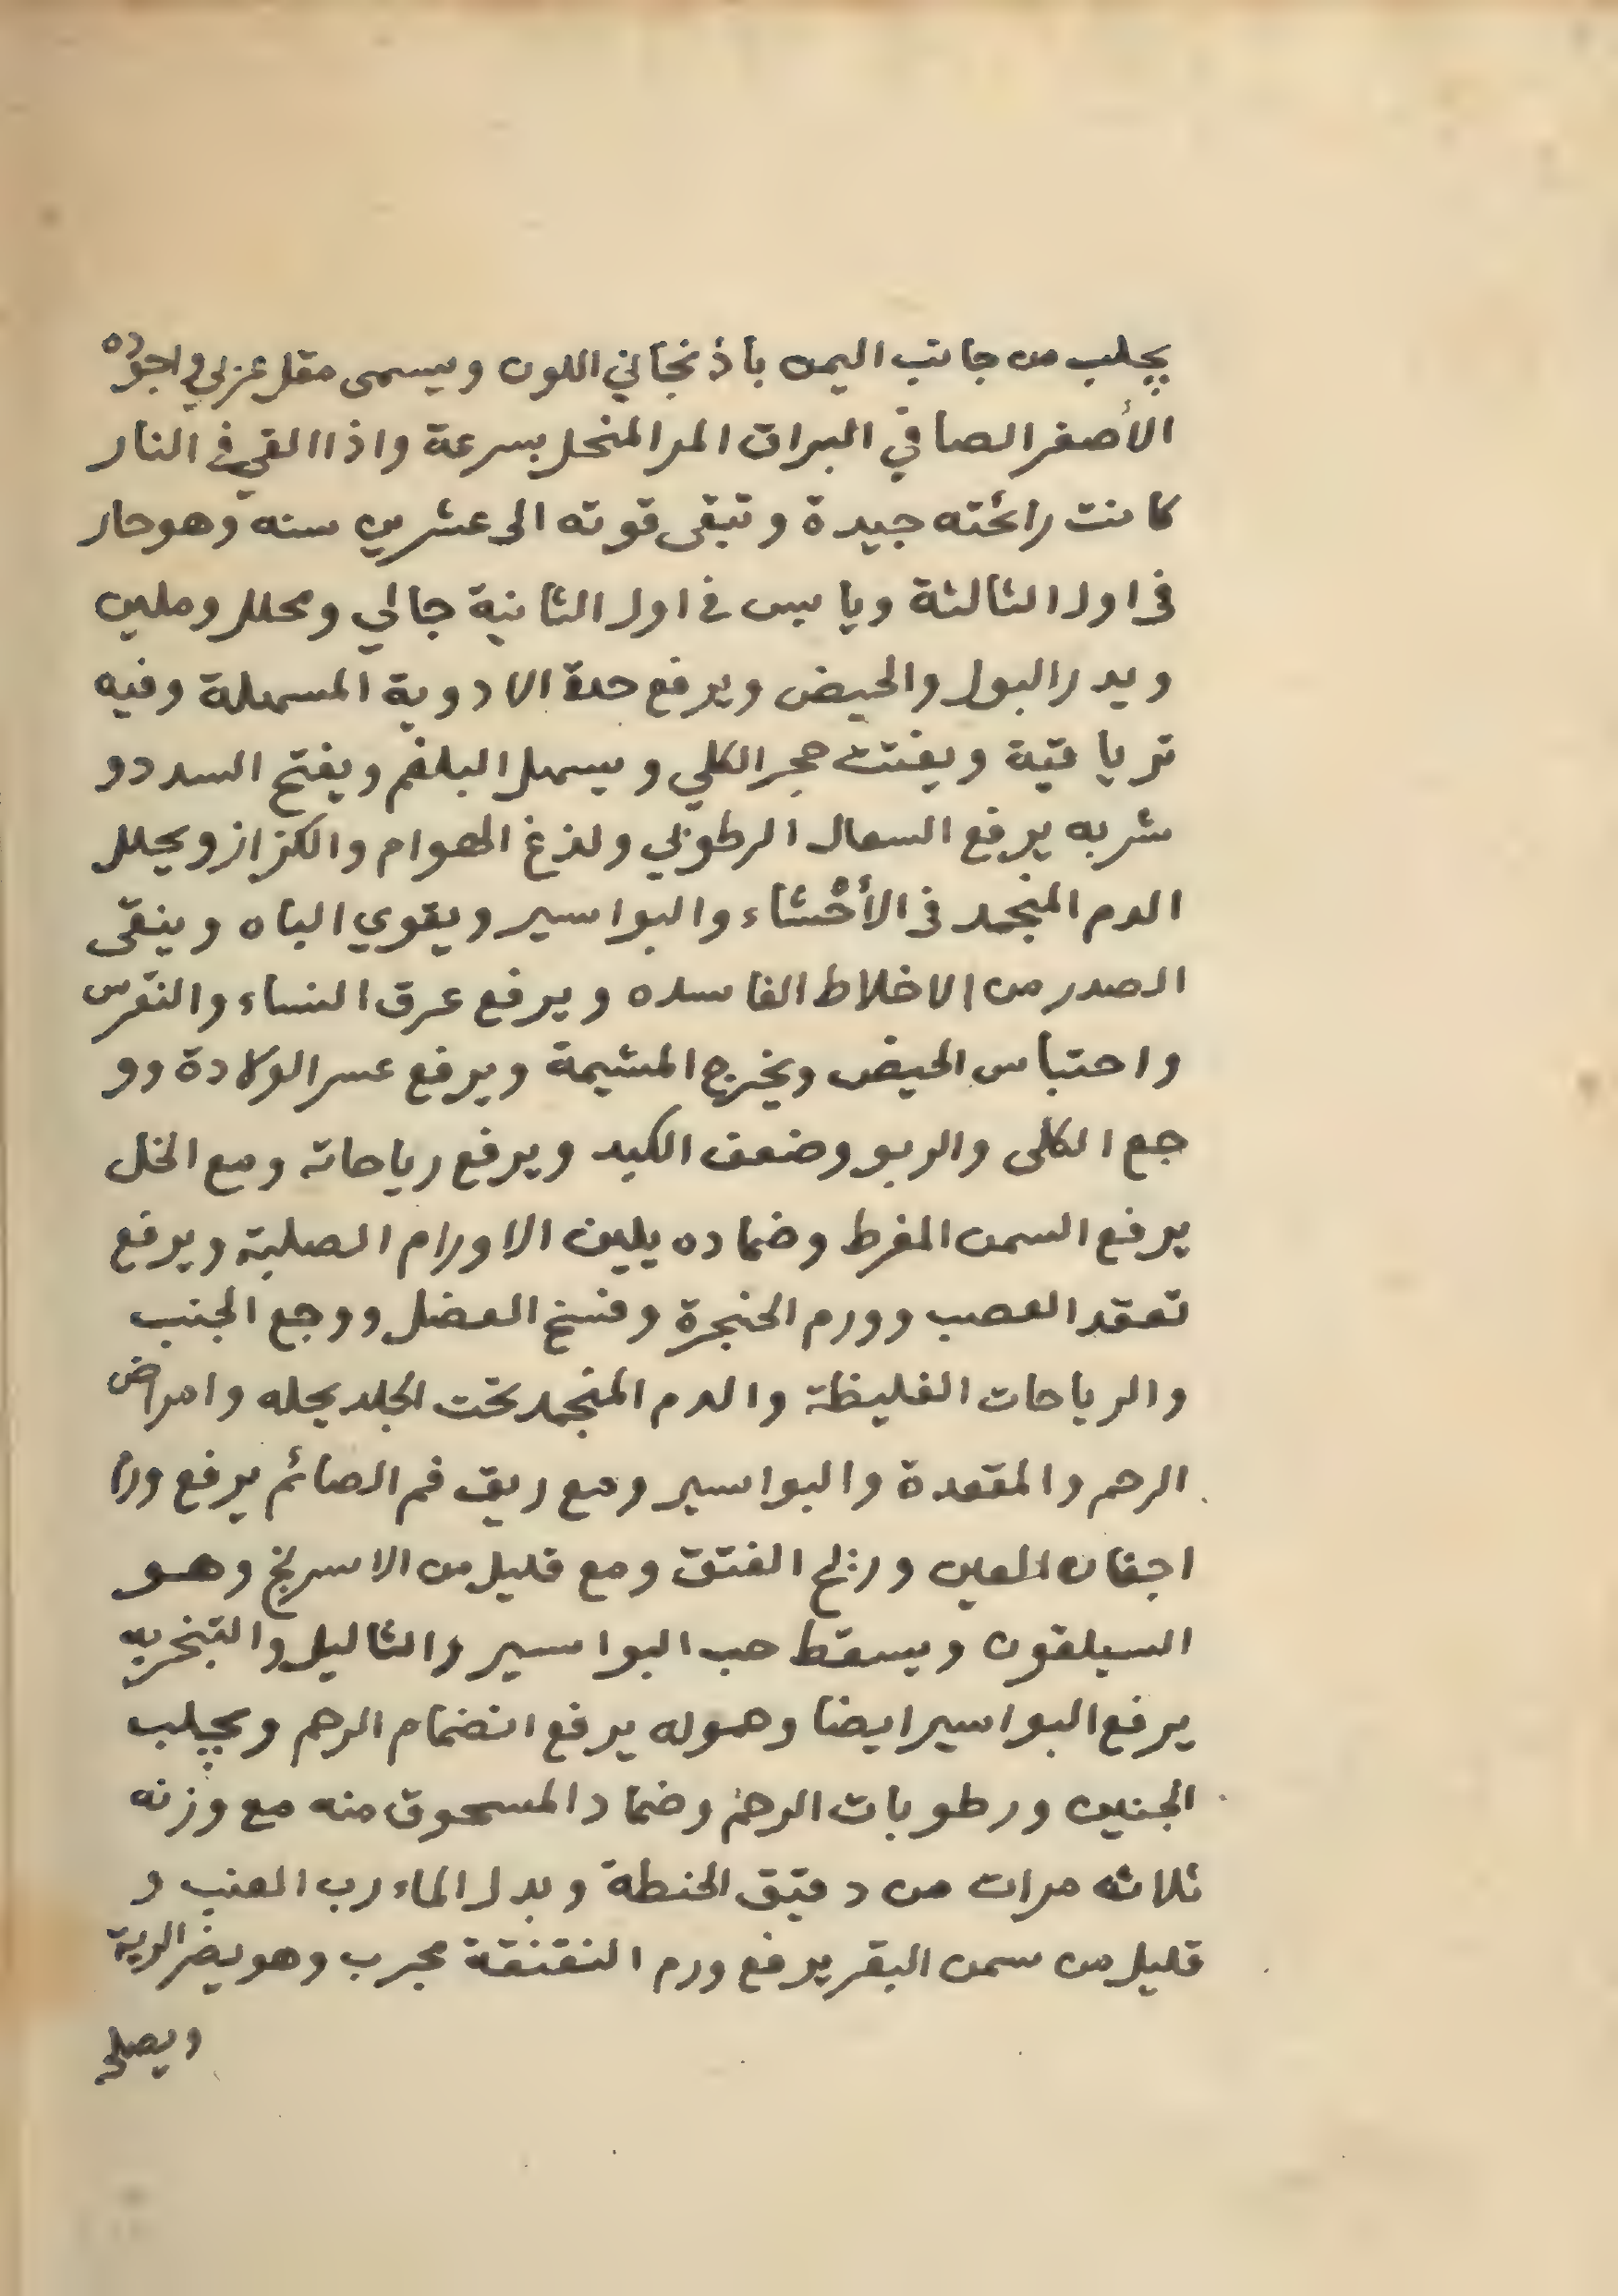 يجلب من جانب اليمن باذنجاني اللون ويسمى مقل عربي واجوده
الأصفر الصافي البراق المر المنحل بسرعة واذا القي في النار
كانت رائحته جيدة وتبقى قوته الى عشرين سنه وهو حار
في اول الثالثة ويابس في اول الثانية جالي ومحلل وملين
ويدر البول والحيض ويرفع حدة الادوية المسهلة وفيه
ترياقية ويفتت حجر الكلي ويسهل البلغم ويفتح السدد و
شربه يرفع السعال الرطوبي ولذغ الهوام والكزاز ويحلل
الدم المنجمد في الأحْشاء والبواسير ويقوي الباه وينقى
الصدر من الاخلاط الفاسده ويرفع عرق النساء والنقرس
واحتباس الحيض ويخرج المشيمة ويرفع عسر الولادة وو
جع الكلى والربو وضعف الكبد ويرفع رياحاته ومع الخل
يرفع السمن المفرط وضماده يلين الاورام الصلبة ويرفع
تعقد العصب وورم الحنجرة وفسخ العضل ووجع الجنب
والرياحات الغليظة والدم المنجمد تحت الجلد يحله وامراض
الرحم والمقعدة والبواسير ومع ريق فم الصائم يرفع
اجفان العين و الفتق ومع قليل من الاسرنج وهو
السيلقون ويسقط حب البواسير والثاليل والتبخر به
يرفع البواسير ايضا وحموله يرفع انضمام الرحم ويجلب
الجنين ورطوبات الرحم وضماد المسحوق منه مع وزنه
ثلاثه مرات من دقيق الحنطة وبدل الماء رب العنب و
قليل من سمن البقر يرفع ورم النقنقة مجرب وهو يضر الرية
ويصلح